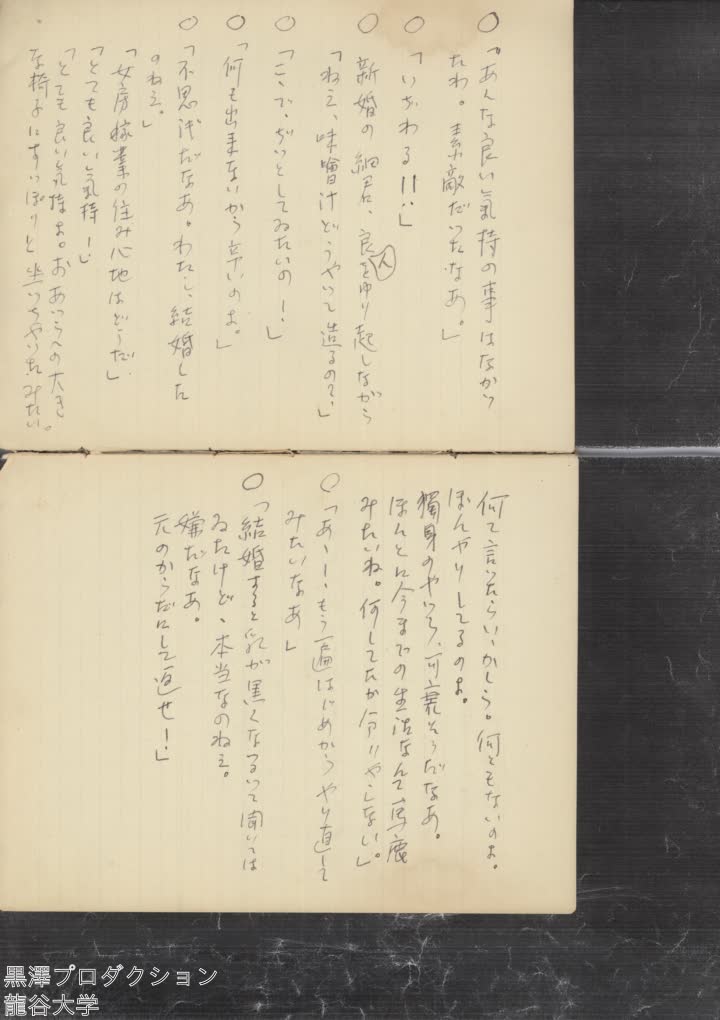 ○「あんな良い氣持の事はなかつ
たわ。素敵だつたなあ。」
○「いぢわる!!‥」
○ 新婚の細君、良人をゆり起しながら
「ねえ、味噌汁どうやつて造るの?、」
○「こゝで、ぢつとしてゐたいの―!」
○「何も出来ないから辛いのよ。」
○「不思議だなあ。わたし、結婚した
のねえ。」
「女房稼業の住み心地はどうだ」
「とても良い氣持―!」
「とても良い氣持よ。おあつらへの大き
な椅子にすつぽりと坐つちやつたみたい。
何て言つたらいゝかしら。何ともないのよ。
ぼんやりしてるのよ。
獨身のやつら、可哀そうだなあ。
ほんとに今までの生活なんて馬鹿
みたいね。何してたか分りやしない」。
○「あーー、もう一遍はじめからやり直して
みたいなあ」
○「結婚すると乳が黒くなるつて聞いては
ゐたけど、本当なのねえ。
嫌だなあ。
元のからだにして返せー!」
黒澤プロダクション
龍谷大学